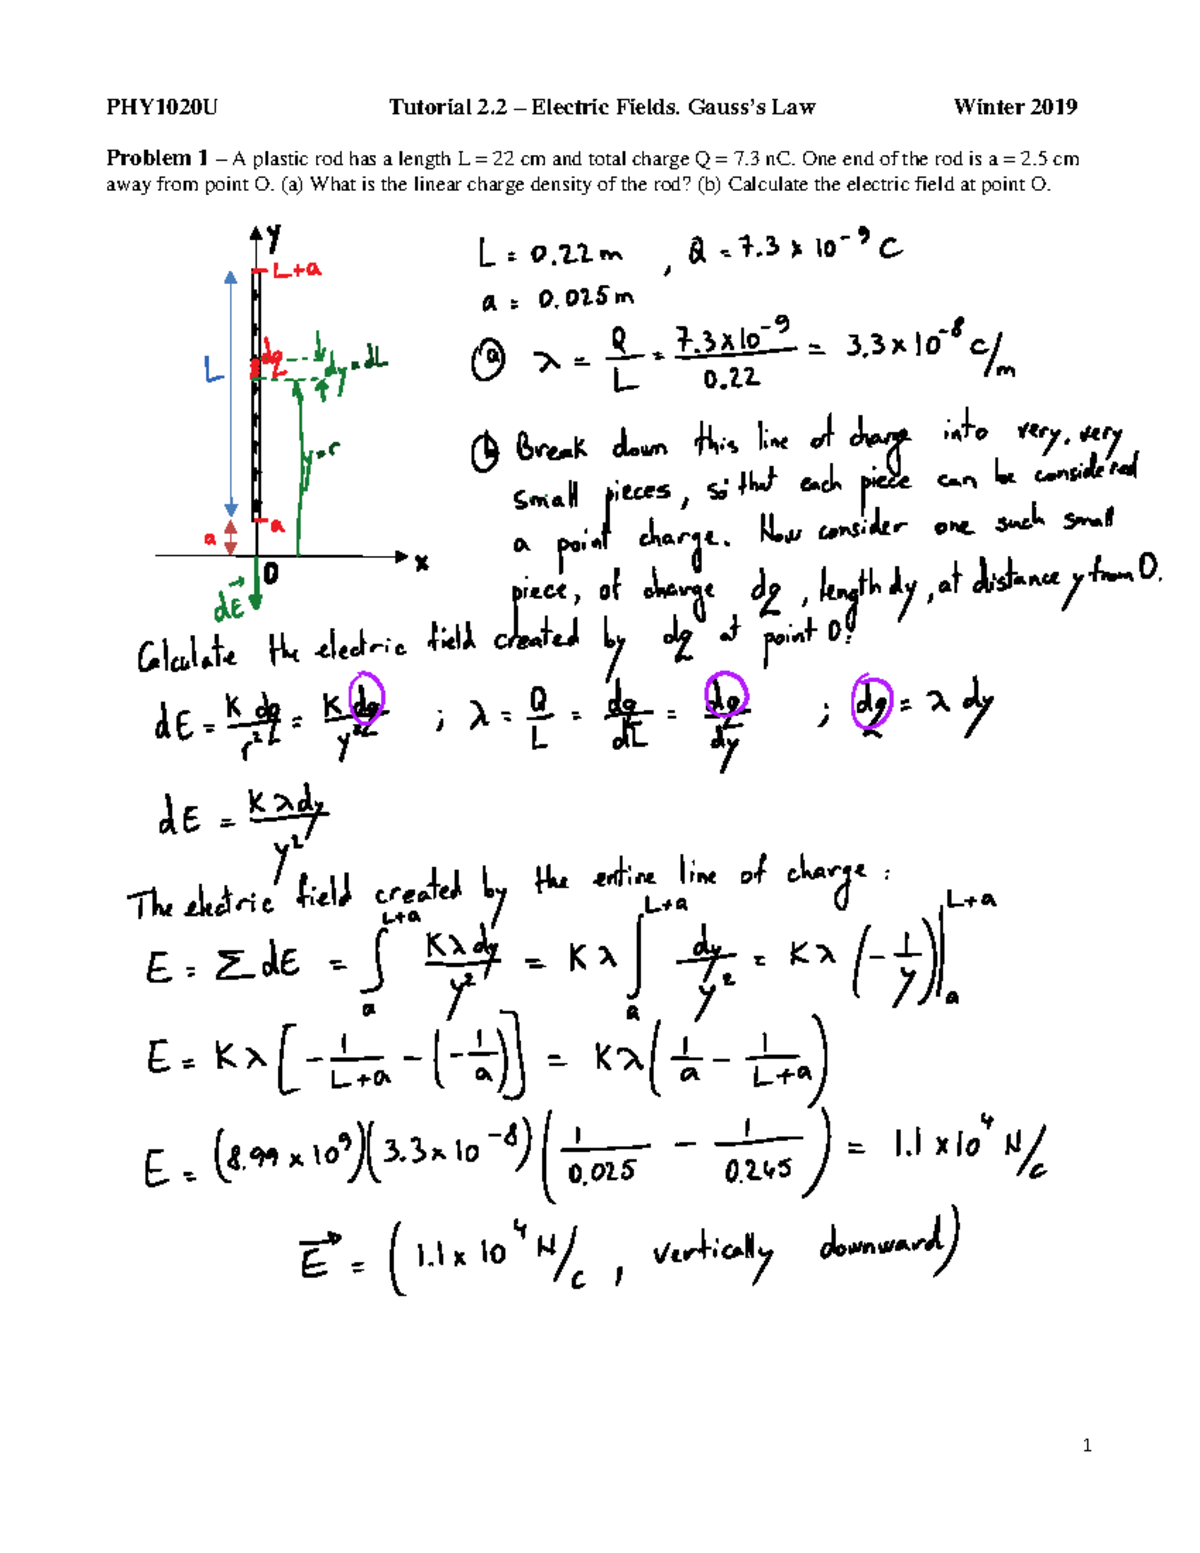 PHY1020U Tutorial 2.2 – Electric Fields. Gauss's Law Winter 2019
Problem 1 – A plastic rod has a length L = 22 cm and total charge Q = 7.3 nC. One end of the rod is a = 2.5 cm
away from point O. (a) What is the linear charge density of the rod? (b) Calculate the electric field at point O.
y
L+a
dq
dy = dL
L
y=r
a
a
O
x
dE⃗
L = 0.22 m , Q = 7.3 x 10⁻⁹ C
a = 0.025 m
(a) λ = Q/L = 7.3x10⁻⁹/0.22 = 3.3x10⁻⁸ C/m
(b) Break down this line of charge into very, very
small pieces, so that each piece can be considered
a point charge. Now consider one such small
piece, of charge dq, length dy, at distance y from O.
Calculate the electric field created by dq at point O:
dE = K dq/r² = K dq/y² ; λ = Q/L = dq/dL = dq/dy ; dq = λ dy
dE = Kλdy/y²
The electric field created by the entire line of charge :
E = Σ dE = ∫ₐᴸ⁺ᵃ Kλdy/y² = Kλ ∫ₐᴸ⁺ᵃ dy/y² = Kλ (-1/y)|ₐᴸ⁺ᵃ
E = Kλ[-1/(L+a) - (-1/a)] = Kλ(1/a - 1/(L+a))
E = (8.99 x 10⁹)(3.3x10⁻⁸)(1/0.025 - 1/0.245) = 1.1 x10⁴ N/C
E⃗ = (1.1 x 10⁴ N/C , vertically downward)
1